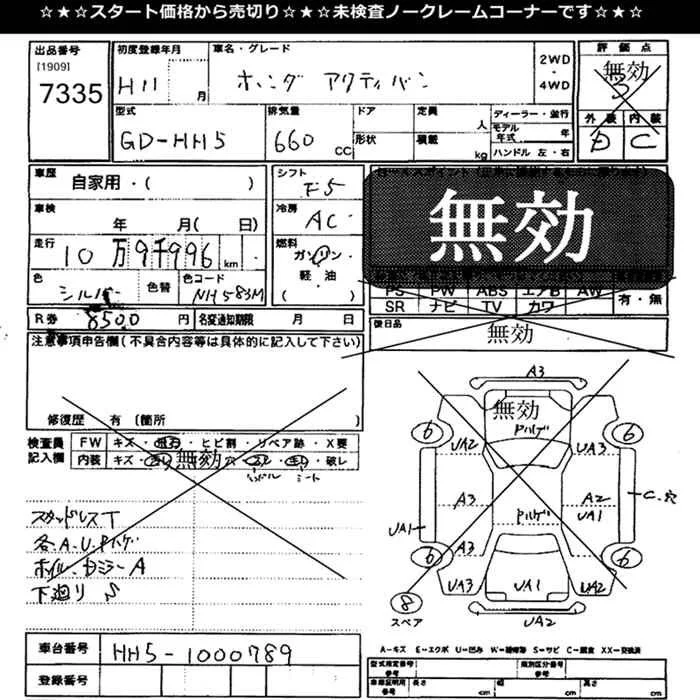 ☆★☆★スタート価格から売切り☆★☆★未検査ノークレームコーナーです☆★☆
出品番号
[1909]
7335
初度登録年月
H11 月
車名・グレード
ホンダ アクティバン
2WD
・
4WD
評価点
無効
外装 内装
D C
型式
GD-HH5
排気量
660 CC
ドア
形状
定員 人
積載 kg
ディーラー・並行
モデル年式 年
ハンドル 左・右
車歴
自家用・( )
車検
年 月( 日)
走行
10万9千996 km
色
シルバー
色替
色コード
NH583M
シフト
F5
冷房
AC
燃料
ガソリン
軽・油
( )
無効
PS PW ABS エアB AW
SR ナビ TV カワ
有・無
R券 8500 円
名変通知期限 月 日
後日品
無効
注意事項申告欄(不具合内容等は具体的に記入して下さい)
修復歴 有 (箇所 )
検査員
記入欄
FW キズ・ ・ヒビ割・リペア跡・X要
内装 キズ・ 無効 穴 ・ ・破レ
ハンドル シート
スタッドレスT
各A.U.Pハゲ
ホイル・ ミラーA
下廻り S
A3
無効
Pハゲ
6
6
UA2
UA3
A3
A2
UA1
C.穴
UA1
Pハゲ
A3
6
6
8
スペア
UA3
UA1
UA2
UA2
車台番号
HH5-1000789
登録番号
A-キズ E-エクボ U-凹み W-補修跡 S-サビ C-腐食 XX-交換済
型式指定番号
参考
類別区分番号
参考
車庫証明用
参考
長さ cm
幅 cm
高さ cm